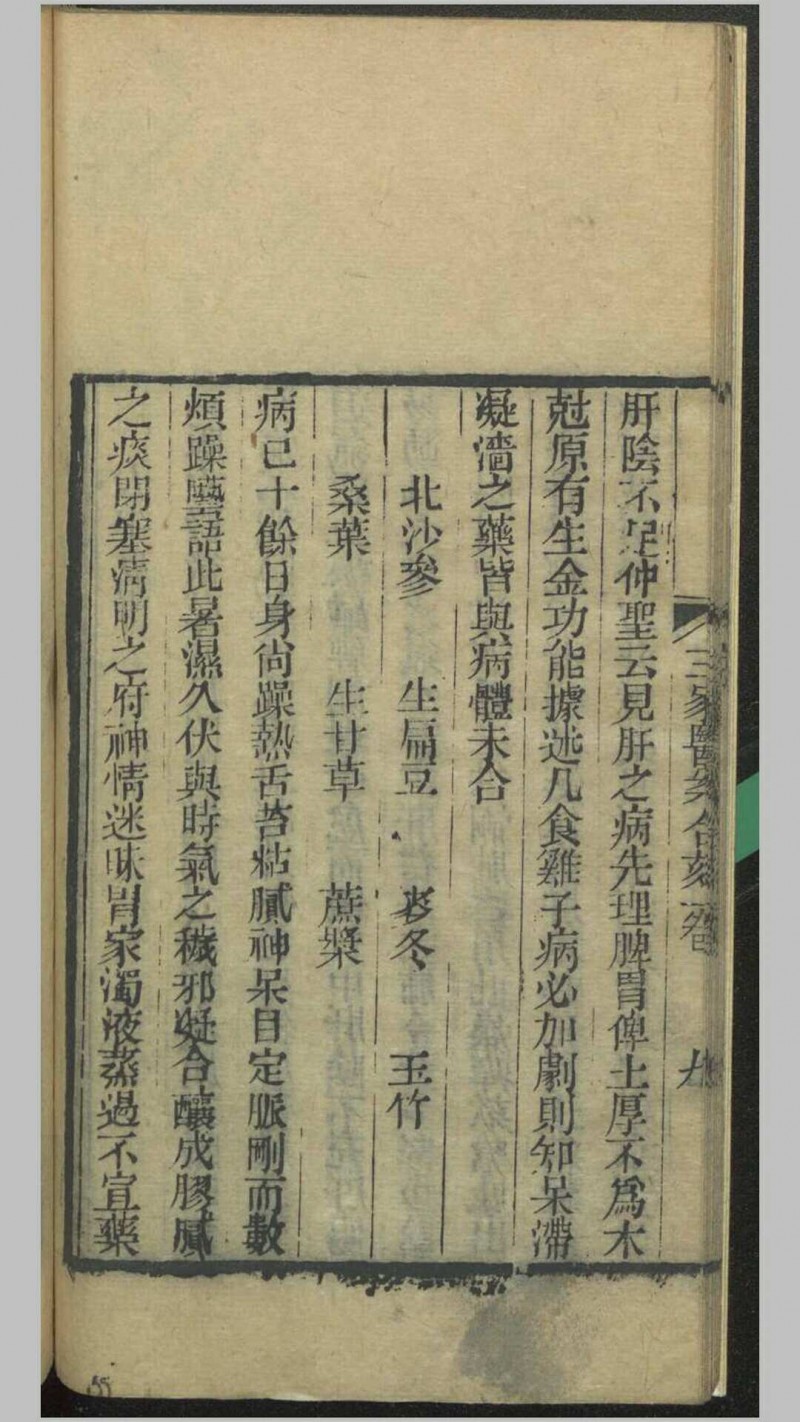 三家醫案合刻 卷一 九
肝陰不足仲聖云見肝之病先理脾胃俾土厚不爲木
尅原有生金功能據述凡食雞子病必加劇則知呆滯
凝濇之藥皆與病體未合
北沙參 生扁豆 麥冬 玉竹
桑葉 生甘草 蔗漿
病已十餘日身尙躁熱舌苔粘膩神呆目定脈剛而數
煩躁譫語此暑濕久伏與時氣之穢邪凝合釀成膠膩
之痰閉塞淸明之府神情迷昧胃家濁液蒸過不宣藥